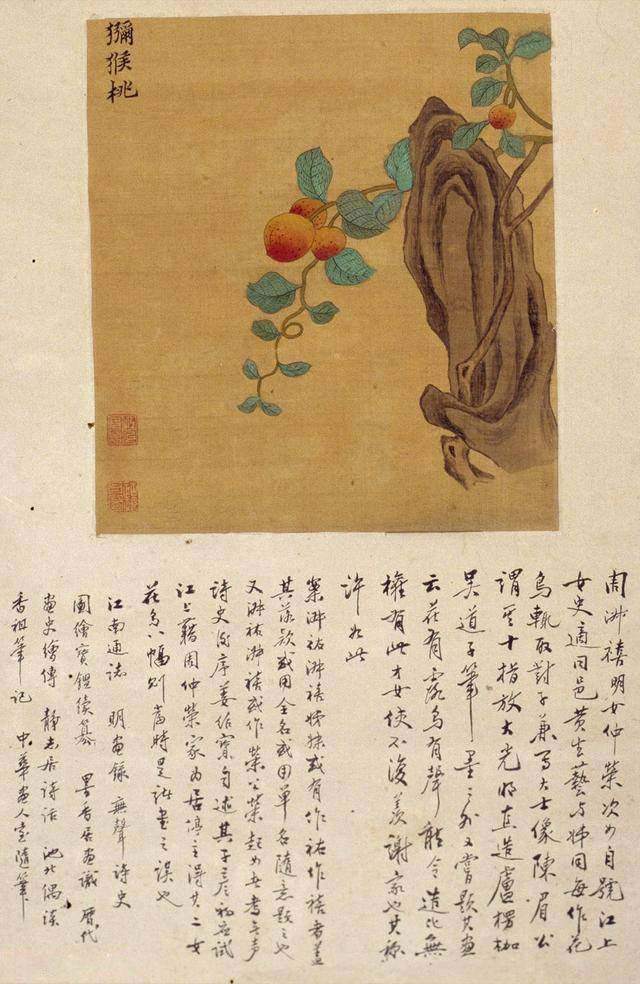 獼猴桃
周淑禧明女仲榮次女自號江上
女史適同邑黃生藝与姊同每作花
鳥輒取對子兼寫大士像陳眉公
謂其十指放大光明直造盧楞枷
吳道子筆墨之外又嘗題其畫
云花有露鳥有聲能令造化無
權有此才女使不復羨謝家也其称
許如此
案淑祜淑禧姊妹或有作祐作禧者蓋
其落款或用全名或用單名隨意題之也
又淑祜淑禧或作榮公榮起女考無声
詩史後序姜绍書自述其子彦初應試
江上藉周仲榮家为居停主得其二女
花鳥八幅則當時是誌畫之誤也
江南通志 明畫錄 無聲詩史
圖繪寶鑑續纂 墨香居畫識 歷代
畫史繪傳 靜志居詩話 池北偶談
香祖筆記 中華畫人室隨筆